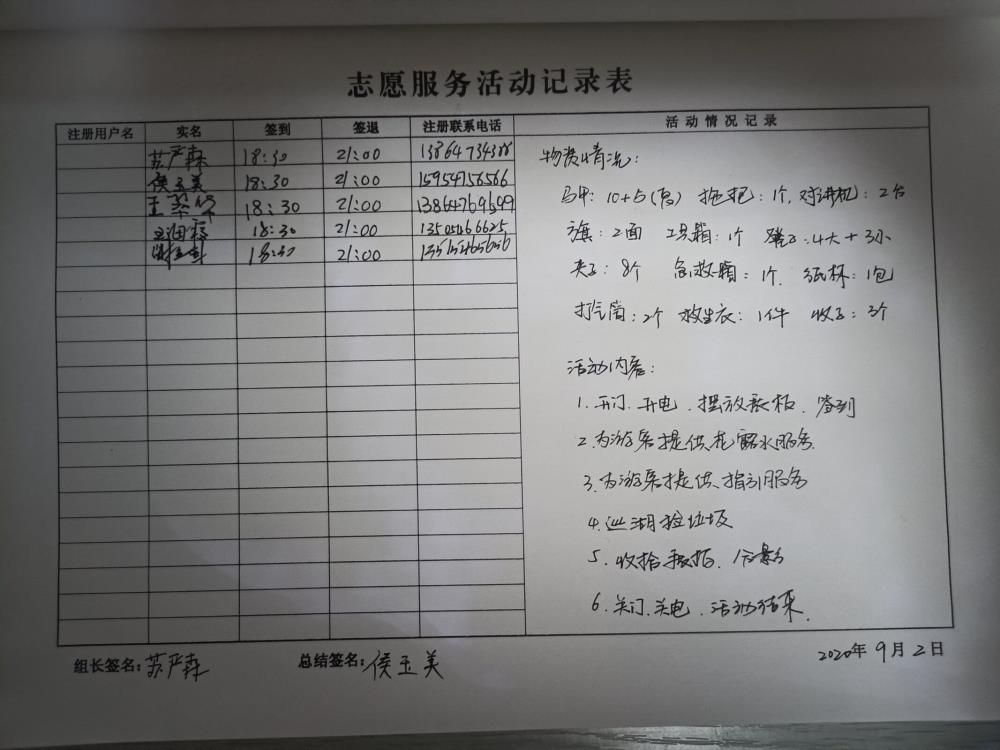 志愿服务活动记录表
注册用户名 实名 签到 签退 注册联系电话 活动情况记录
苏严森 18:30 21:00
侯玉美 18:30 21:00 15954756566
王 18:30 21:00
18:30 21:00
18:30 21:00
物资情况:
马甲: 10+5(男) 拖把: 1个, 对讲机: 2台
旗: 2面 工具箱: 1个 : 4大+3小
夹子: 8个 急救箱: 1个. 纸杯: 1包
打气筒: 2个 救生衣: 1件 : 3个
活动内容:
1. 开门. 开电. 摆放展板. 签到
2. 为游客提供花露水服务.
3. 为游客提供指引服务
4. 巡湖捡垃圾
5. 收拾展板. 合影
6. 关门. 关电. 活动结束.
组长签名: 苏严森 总结签名: 侯玉美 2020年9月2日